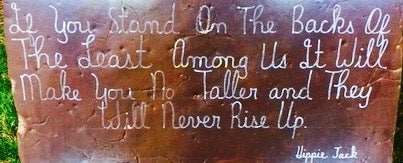 If You Stand On The Backs Of
The Least Among Us It Will
Make You No Taller and They
Will Never Rise Up.
Hippie Jack